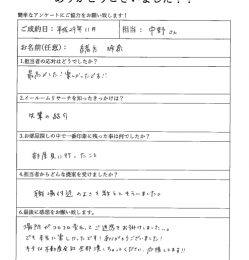 ありがとうございました！！
簡単なアンケートにご協力をお願い致します！
ご成約日：平成29年11月 担当：中野さん
お名前(任意)：
1.担当者の応対はどうでしたか？
最高でした！楽しかったです！！
2.イールームリサーチを知ったきっかけは？
先輩の紹介
3.お部屋探しの中で一番印象に残った事は何でしたか？
部屋見に行ったこと
4.担当者からどんな提案を受けましたか？
職場付近のよさを教えてもらいました
6.最後に感想をお願い致します。
場所がコロコロ変わってご迷惑をお掛けしました…。
でも本当に楽しかったです！ありがとうございました！